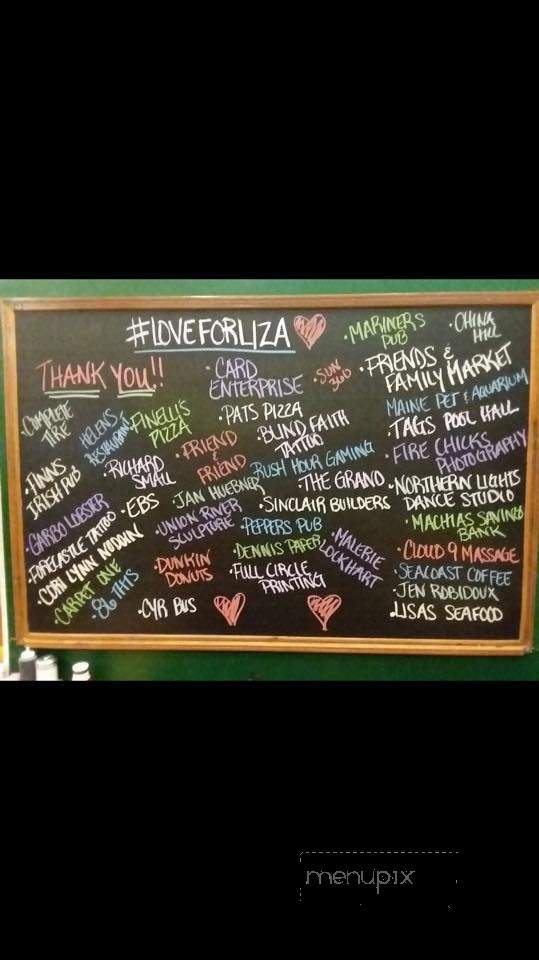 #LOVEFORLIZA
THANK YOU!!
·COMPLETE
TIRE
·HELENS
RESTAURANT
·FINELLI'S
PIZZA
·FINNS
IRISH PUB
·RICHARD
SMALL
·GARBO LOBSTER
·EBS
·FORECASTLE TATTOO
·CORI LYNN
·CARPET ONE
·86 THIS
·CYR BUS
·CARD
ENTERPRISE
·SUN
360
·PATS PIZZA
·BLIND FAITH
TATTOO
·FRIEND
&
FRIEND
·RUSH HOUR GAMING
·JAN HUEBNER
·THE GRAND
·UNION RIVER
SCULPTURE
·SINCLAIR BUILDERS
·PEPPERS PUB
·DENNIS PAPER
·MALERIE
LOCKHART
·DUNKIN
DONUTS
·FULL CIRCLE
PRINTING
·MARINERS
PUB
·CHINA
HILL
·FRIENDS &
FAMILY MARKET
·MAINE PET & AQUARIUM
·TAGS POOL HALL
·FIRE CHICKS
PHOTOGRAPHY
·NORTHERN LIGHTS
DANCE STUDIO
·MACHIAS SAVINGS
BANK
·CLOUD 9 MASSAGE
·SEACOAST COFFEE
·JEN ROBIDOUX
·LISAS SEAFOOD
menupix